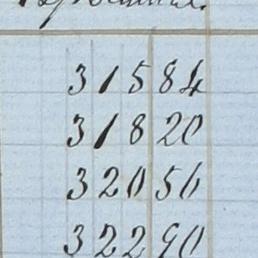 315 84
318 20
320 56
322 90